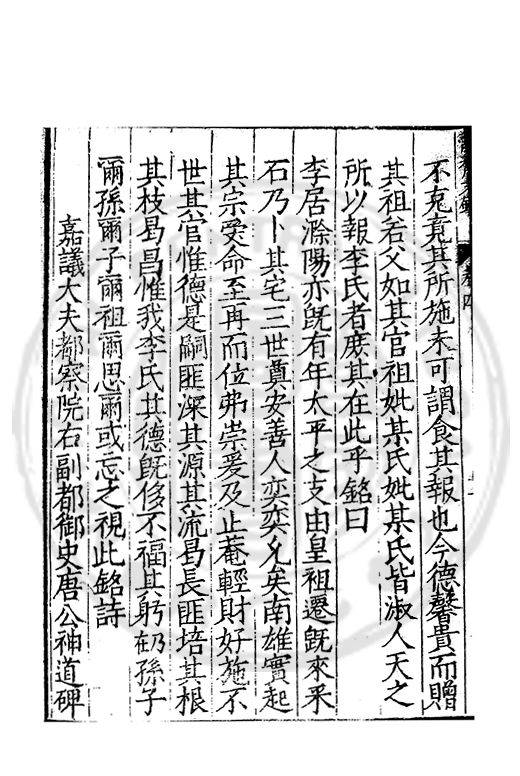 不克竟其所施未可謂食其報也今德馨貴而贈
其祖若父如其官祖妣某氏妣某氏皆淑人天之
所以報李氏者庶其在此乎銘曰
李居滁陽亦旣有年太平之支由皇祖遷旣來采
石乃卜其宅三世奠安善人奕奕允矣南雄實起
其宗受命至再而位弗崇爰及止菴輕財好施不
世其官惟德是嗣匪深其源其流曷長匪培其根
其枝曷昌惟我李氏其德旣侈不福其躬在孫子
爾孫爾子爾祖爾思爾或忘之視此銘詩
嘉議大夫都察院右副都御史唐公神道碑
卷四